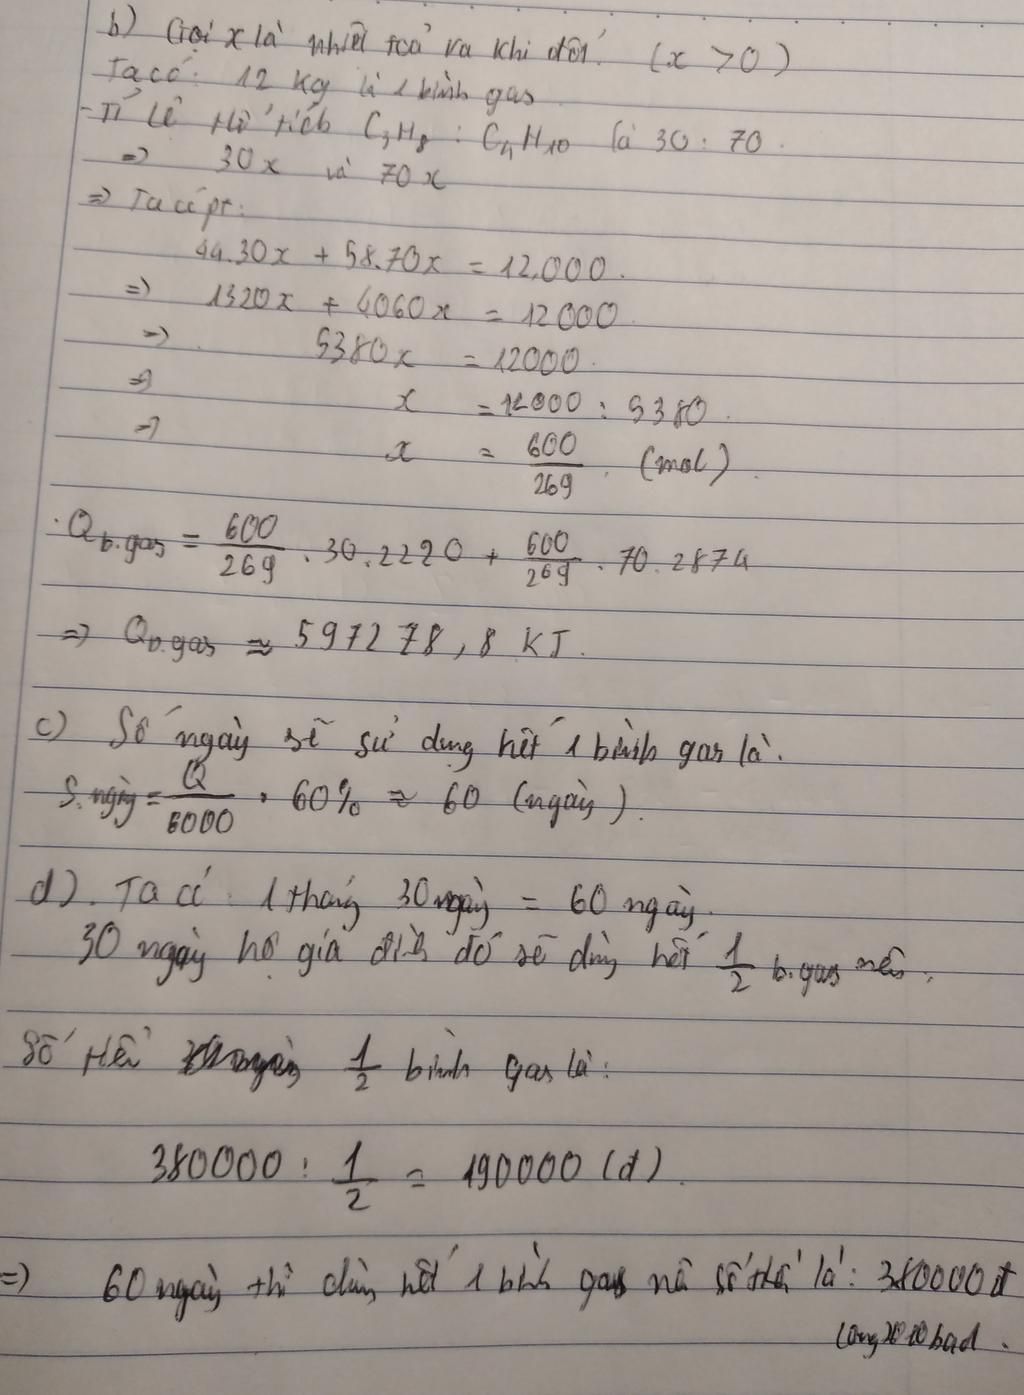 b) Gọi x là nhiệt toả ra khi đốt. (x > 0)
Ta có: 12 kg là 1 bình gas
- Tỉ lệ thể tích C3H8 : C4H10 là 30 : 70.
=> 30x và 70x
=> Ta có pt:
44.30x + 58.70x = 12.000.
=> 1320x + 4060x = 12000.
=> 5380x = 12000.
=> x = 12000 : 5380.
=> x = 600/269 (mol).
Q b.gas = 600/269 . 30.2220 + 600/269 . 70.2874
=> Q b.gas ≈ 597278,8 KJ.
c) Số ngày sẽ sử dụng hết 1 bình gas là.
S.ngày = Q/6000 . 60% ≈ 60 (ngày).
d). Ta có: 1 tháng 30 ngày = 60 ngày.
30 ngày hộ gia đình đó sẽ dùng hết 1/2 b.gas nên.
Số tiền 1/2 bình gas là:
380000 : 1/2 = 190000 (đ).
=> 60 ngày thì dùng hết 1 bình gas nên số tiền là: 380000đ